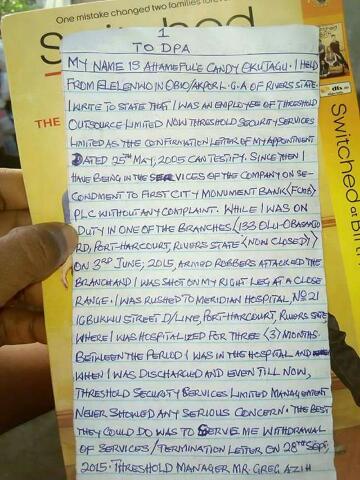 One mistake changed two families forever
Switched
THE
dfs
Switched at Birth
1
TO DPA
MY NAME IS AHAMEFULE CANDY OKUTAGU. I HELD
FROM ELELENWO IN OBIO/AKPOR L.G.A OF RIVERS STATE.
I WRITE TO STATE THAT I WAS AN EMPLOYEE OF THRESHOLD
OUTSOURCE LIMITED NOW THRESHOLD SECURITY SERVICES
LIMITED AS THE CONFIRMATION LETTER OF MY APPOINTMENT
DATED 25TH MAY, 2005 CAN TESTIFY. SINCE THEN I
HAVE BEING IN THE SERVICES OF THE COMPANY ON SE-
CONDMENT TO FIRST CITY MONUMENT BANK (FCMB)
PLC WITHOUT ANY COMPLAINT. WHILE I WAS ON
DUTY IN ONE OF THE BRANCHES (133 OLU-OBASANJO
RD, PORT-HARCOURT, RIVERS STATE (NOW CLOSED))
ON 3RD JUNE, 2015, ARMED ROBBERS ATTACKED THE
BRANCH AND I WAS SHOT ON MY RIGHT LEG AT A CLOSE
RANGE. I WAS RUSHED TO MERIDIAN HOSPITAL, NO 21
IGBUKWU STREET D/LINE, PORT-HARCOURT, RIVERS STATE
WHERE I WAS HOSPITALIZED FOR THREE (3) MONTHS.
BETWEEN THE PERIOD I WAS IN THE HOSPITAL AND
WHEN I WAS DISCHARGED AND EVEN TILL NOW,
THRESHOLD SECURITY SERVICES LIMITED MANAGEMENT
NEVER SHOWED ANY SERIOUS CONCERN. THE BEST
THEY COULD DO WAS TO SERVE ME WITHDRAWAL
OF SERVICES/TERMINATION LETTER ON 28TH SEPT,
2015. THRESHOLD MANAGER MR. GREG AZIH